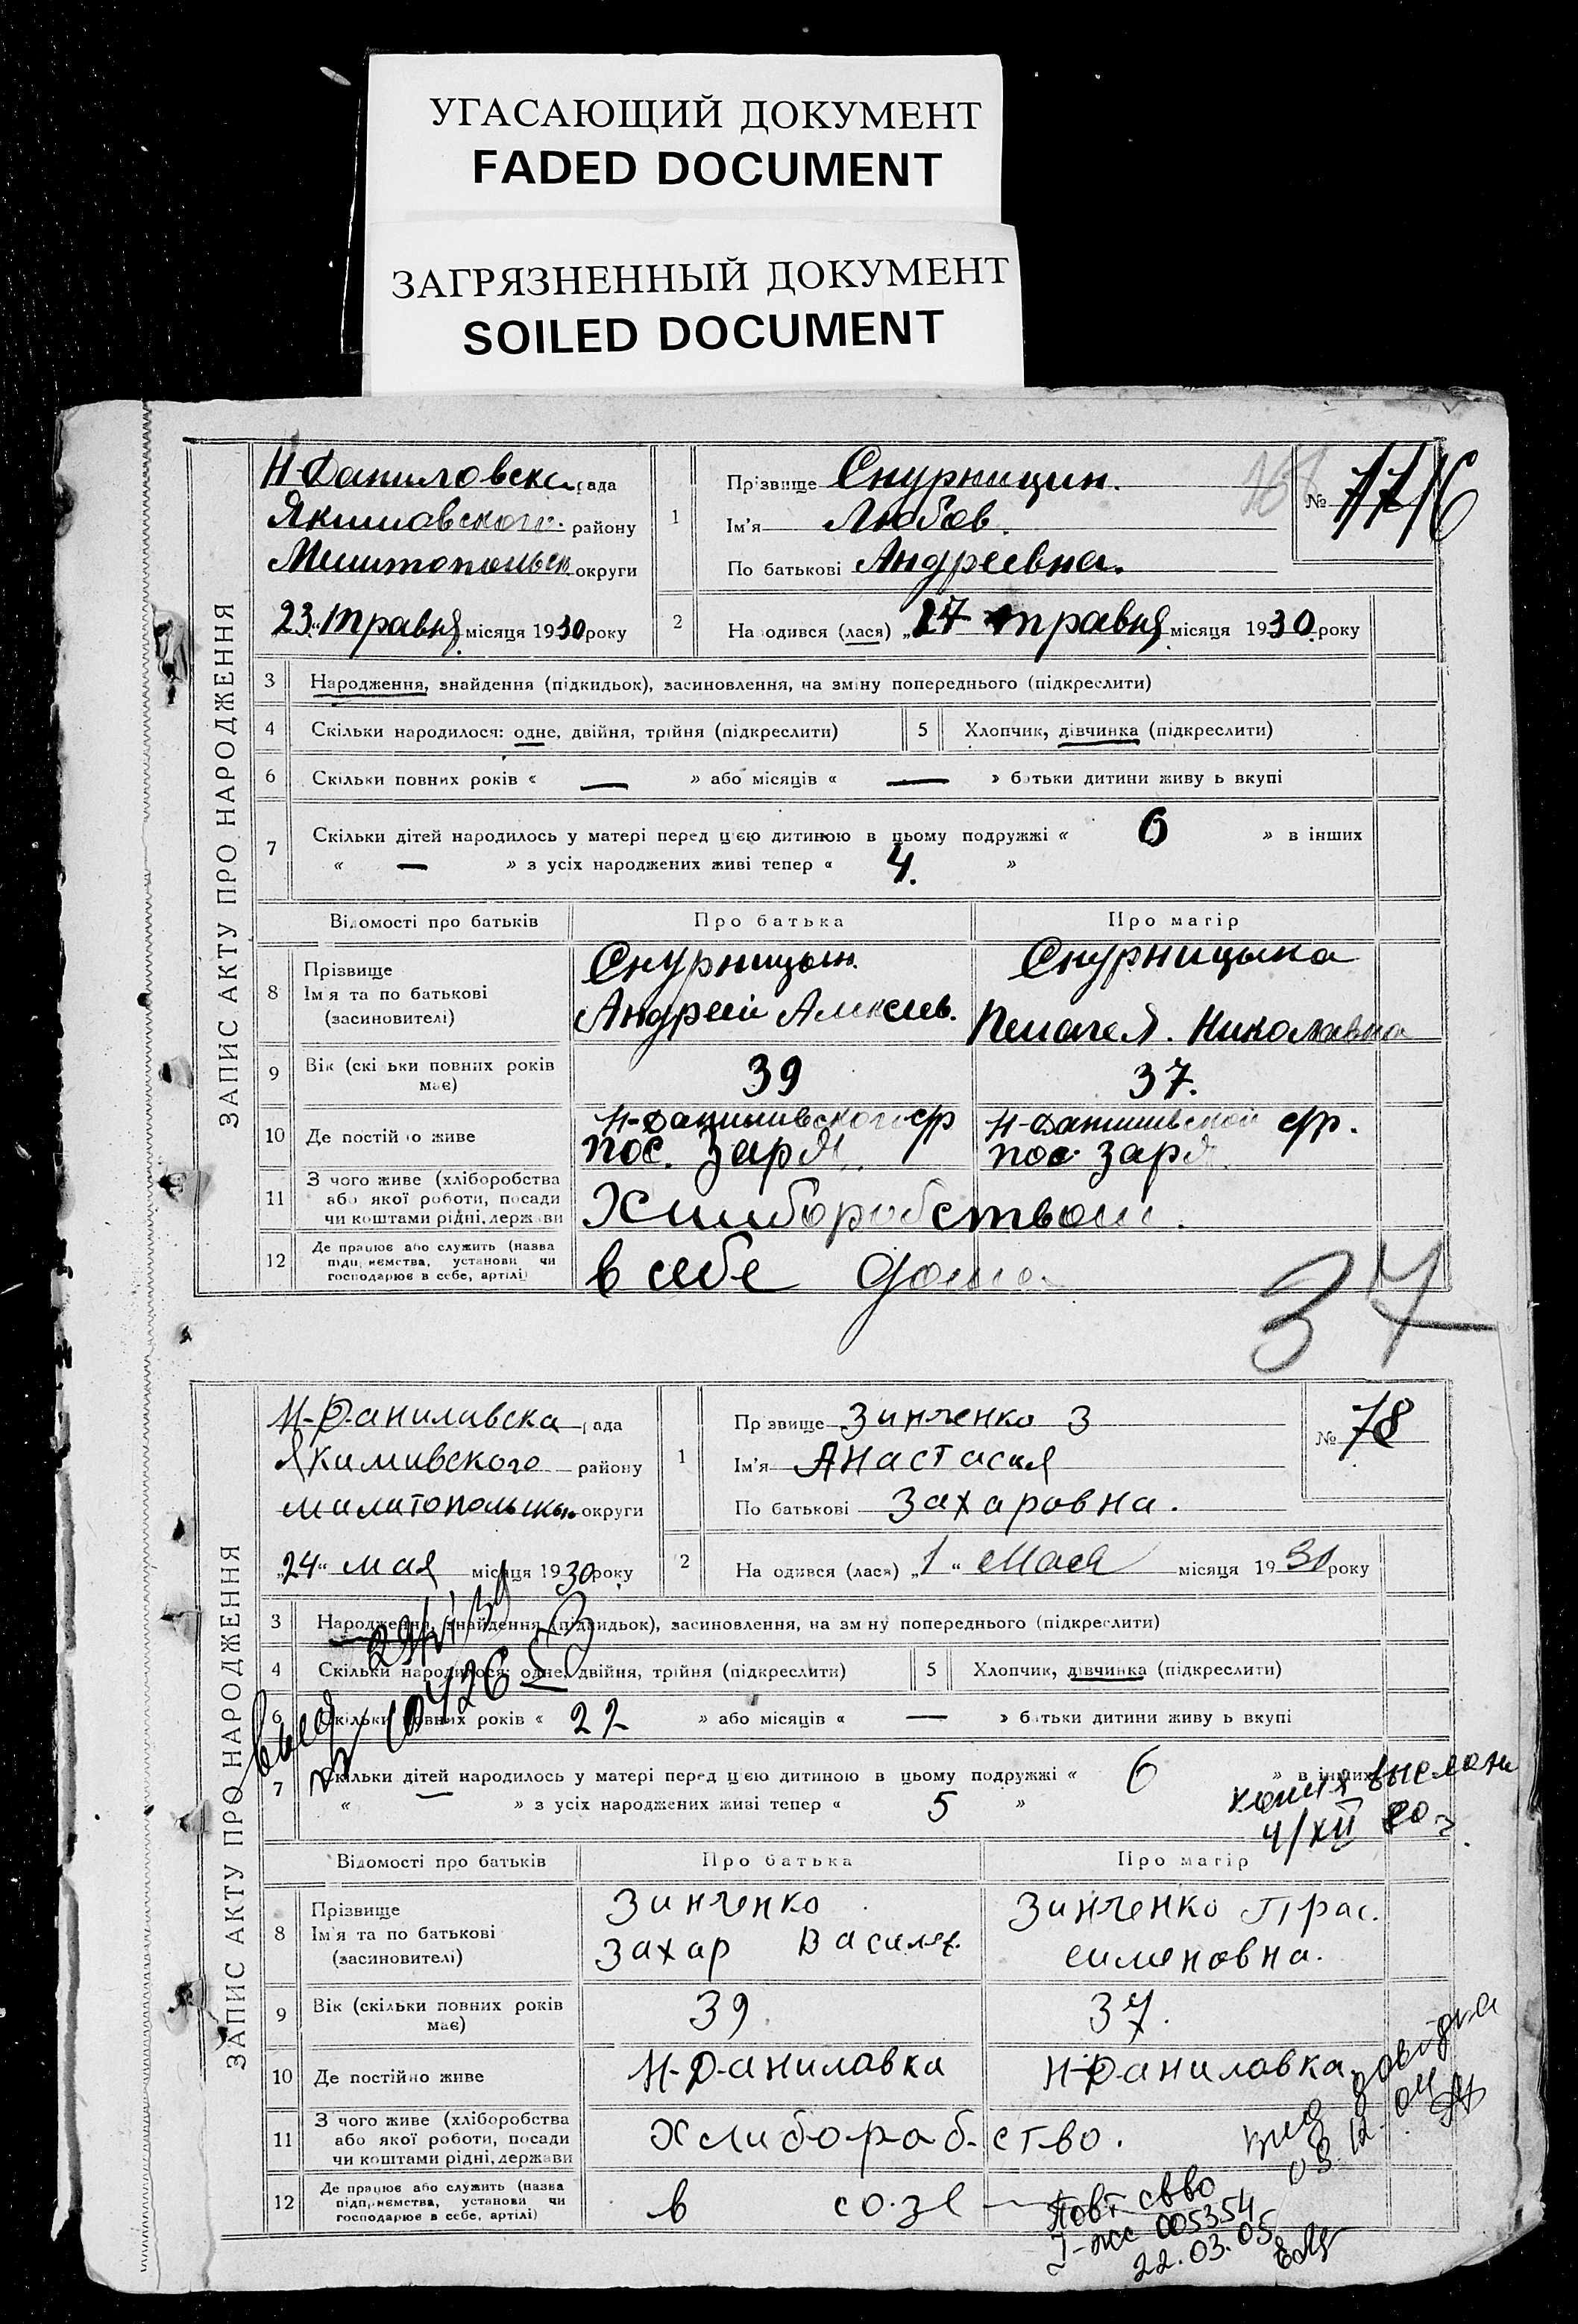 УГАСАЮЩИЙ ДОКУМЕНТ
FADED DOCUMENT
ЗАГРЯЗНЕННЫЙ ДОКУМЕНТ
SOILED DOCUMENT
ЗАПИС АКТУ ПРО НАРОДЖЕННЯ
Н-Даниловска рада
району
округи
"23" Травня місяця 1930 року
1
Прізвище
Ім'я Любов.
По батькові Андреевна.
№ 77
2 На одився (лася) „17 травня місяця 1930 року
3 Народження, знайдення (підкидьок), засиновлення, на зміну попереднього (підкреслити)
4 Скільки народилося: одне, двійня, трійня (підкреслити)
5 Хлопчик, дівчинка (підкреслити)
6 Скільки повних років « — » або місяців « — » батьки дитини живу ь вкупі
7 Скільки дітей народилось у матері перед цією дитиною в цьому подружжі « 6 » в інших
« — » з усіх народжених живі тепер « 4. »
Відомості про батьків
Про батька
Про матір
8 Прізвище
Ім'я та по батькові
(засновителі)
Андрей Алексеев.
Николаевна
9 Вік (скі ьки повних років має)
39
37.
10 Де постійно живе
пос. Заря.
пос. Заря.
11 З чого живе (хліборобства
або якої роботи, посади
чи коштами рідні, держави
12 Де працює або служить (назва
підприємства, установи чи
господарює в себе, артілі)
в себе дома
37
ЗАПИС АКТУ ПРО НАРОДЖЕННЯ
Н-Даниливска рада
Якимивского району
округи
„24" мая місяця 1930 року
1
Пр звище Зинченко З
Ім'я Анастасия
По батькові Захаровна.
№ 78
2 На одився (лася) „1" Мая місяця 1930 року
3 Народження, знайдення (підкидьок), засиновлення, на зміну попереднього (підкреслити)
4 Скільки народилося: одне, двійня, трійня (підкреслити)
5 Хлопчик, дівчинка (підкреслити)
6 Скільки повних років « 22 » або місяців « — » батьки дитини живу ь вкупі
7 Скільки дітей народилось у матері перед цією дитиною в цьому подружжі « 6 » в інших
« — » з усіх народжених живі тепер « 5 »
копия выслана
4/XII
Відомості про батьків
Про батька
Про матір
8 Прізвище
Ім'я та по батькові
(засиновителі)
Зинченко
Захар Василев.
Зинченко Прас.
Сименовна.
9 Вік (скільки повних років має)
39.
37.
10 Де постійно живе
Н-Даниловка
Н-Даниловка
11 З чого живе (хліборобства
або якої роботи, посади
чи коштами рідні, держави
Хлиборобство.
12 Де працює або служить (назва
підприємства, установи чи
господарює в себе, артілі)
в созе
довідка
03.12.04
Повт св-во
І-жс 005354
22.03.05